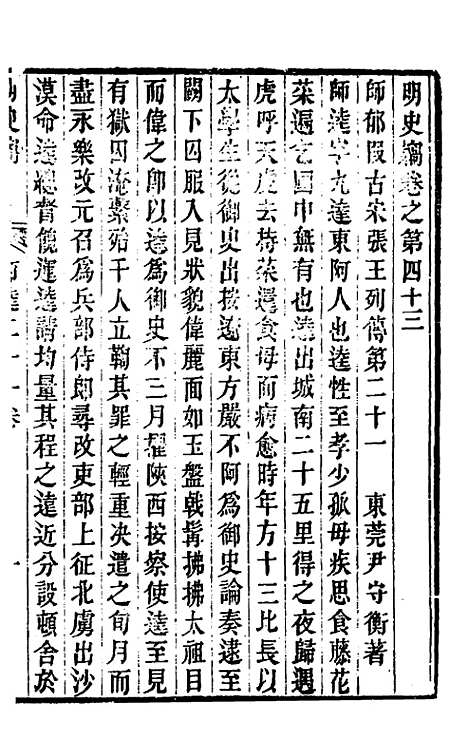 明史竊卷之第四十三
師郁叚古宋張王列傳第二十一　東莞尹守衡著
師逵字九逵東阿人也逵性至孝少孤母疾思食藤花
菜遍乞國中無有也逵出城南二十五里得之夜歸遇
虎呼天虎去持菜還食母而病愈時年方十三比長以
太學生從御史出按遼東方嚴不阿為御史論奏逮至
闕下囚服入見狀貌偉麗面如玉盤戟髯拂拂太祖目
而偉之即以逵為御史不三月擢陝西按察使逵至見
有獄囚淹繫殆千人立鞠其罪之輕重決遣之旬月而
盡永樂改元召為兵部侍郎尋改吏部上征北虜出沙
漠命逵總督餽運逵請均量其程之遠近分設頓舍於